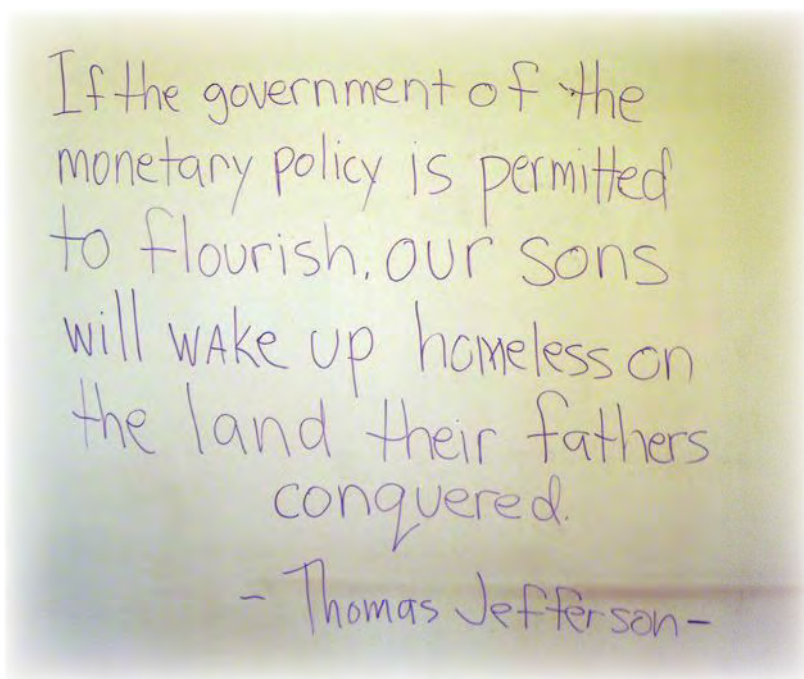 If the government of the
monetary policy is permitted
to flourish. our sons
will wake up homeless on
the land their fathers
conquered.
- Thomas Jefferson -